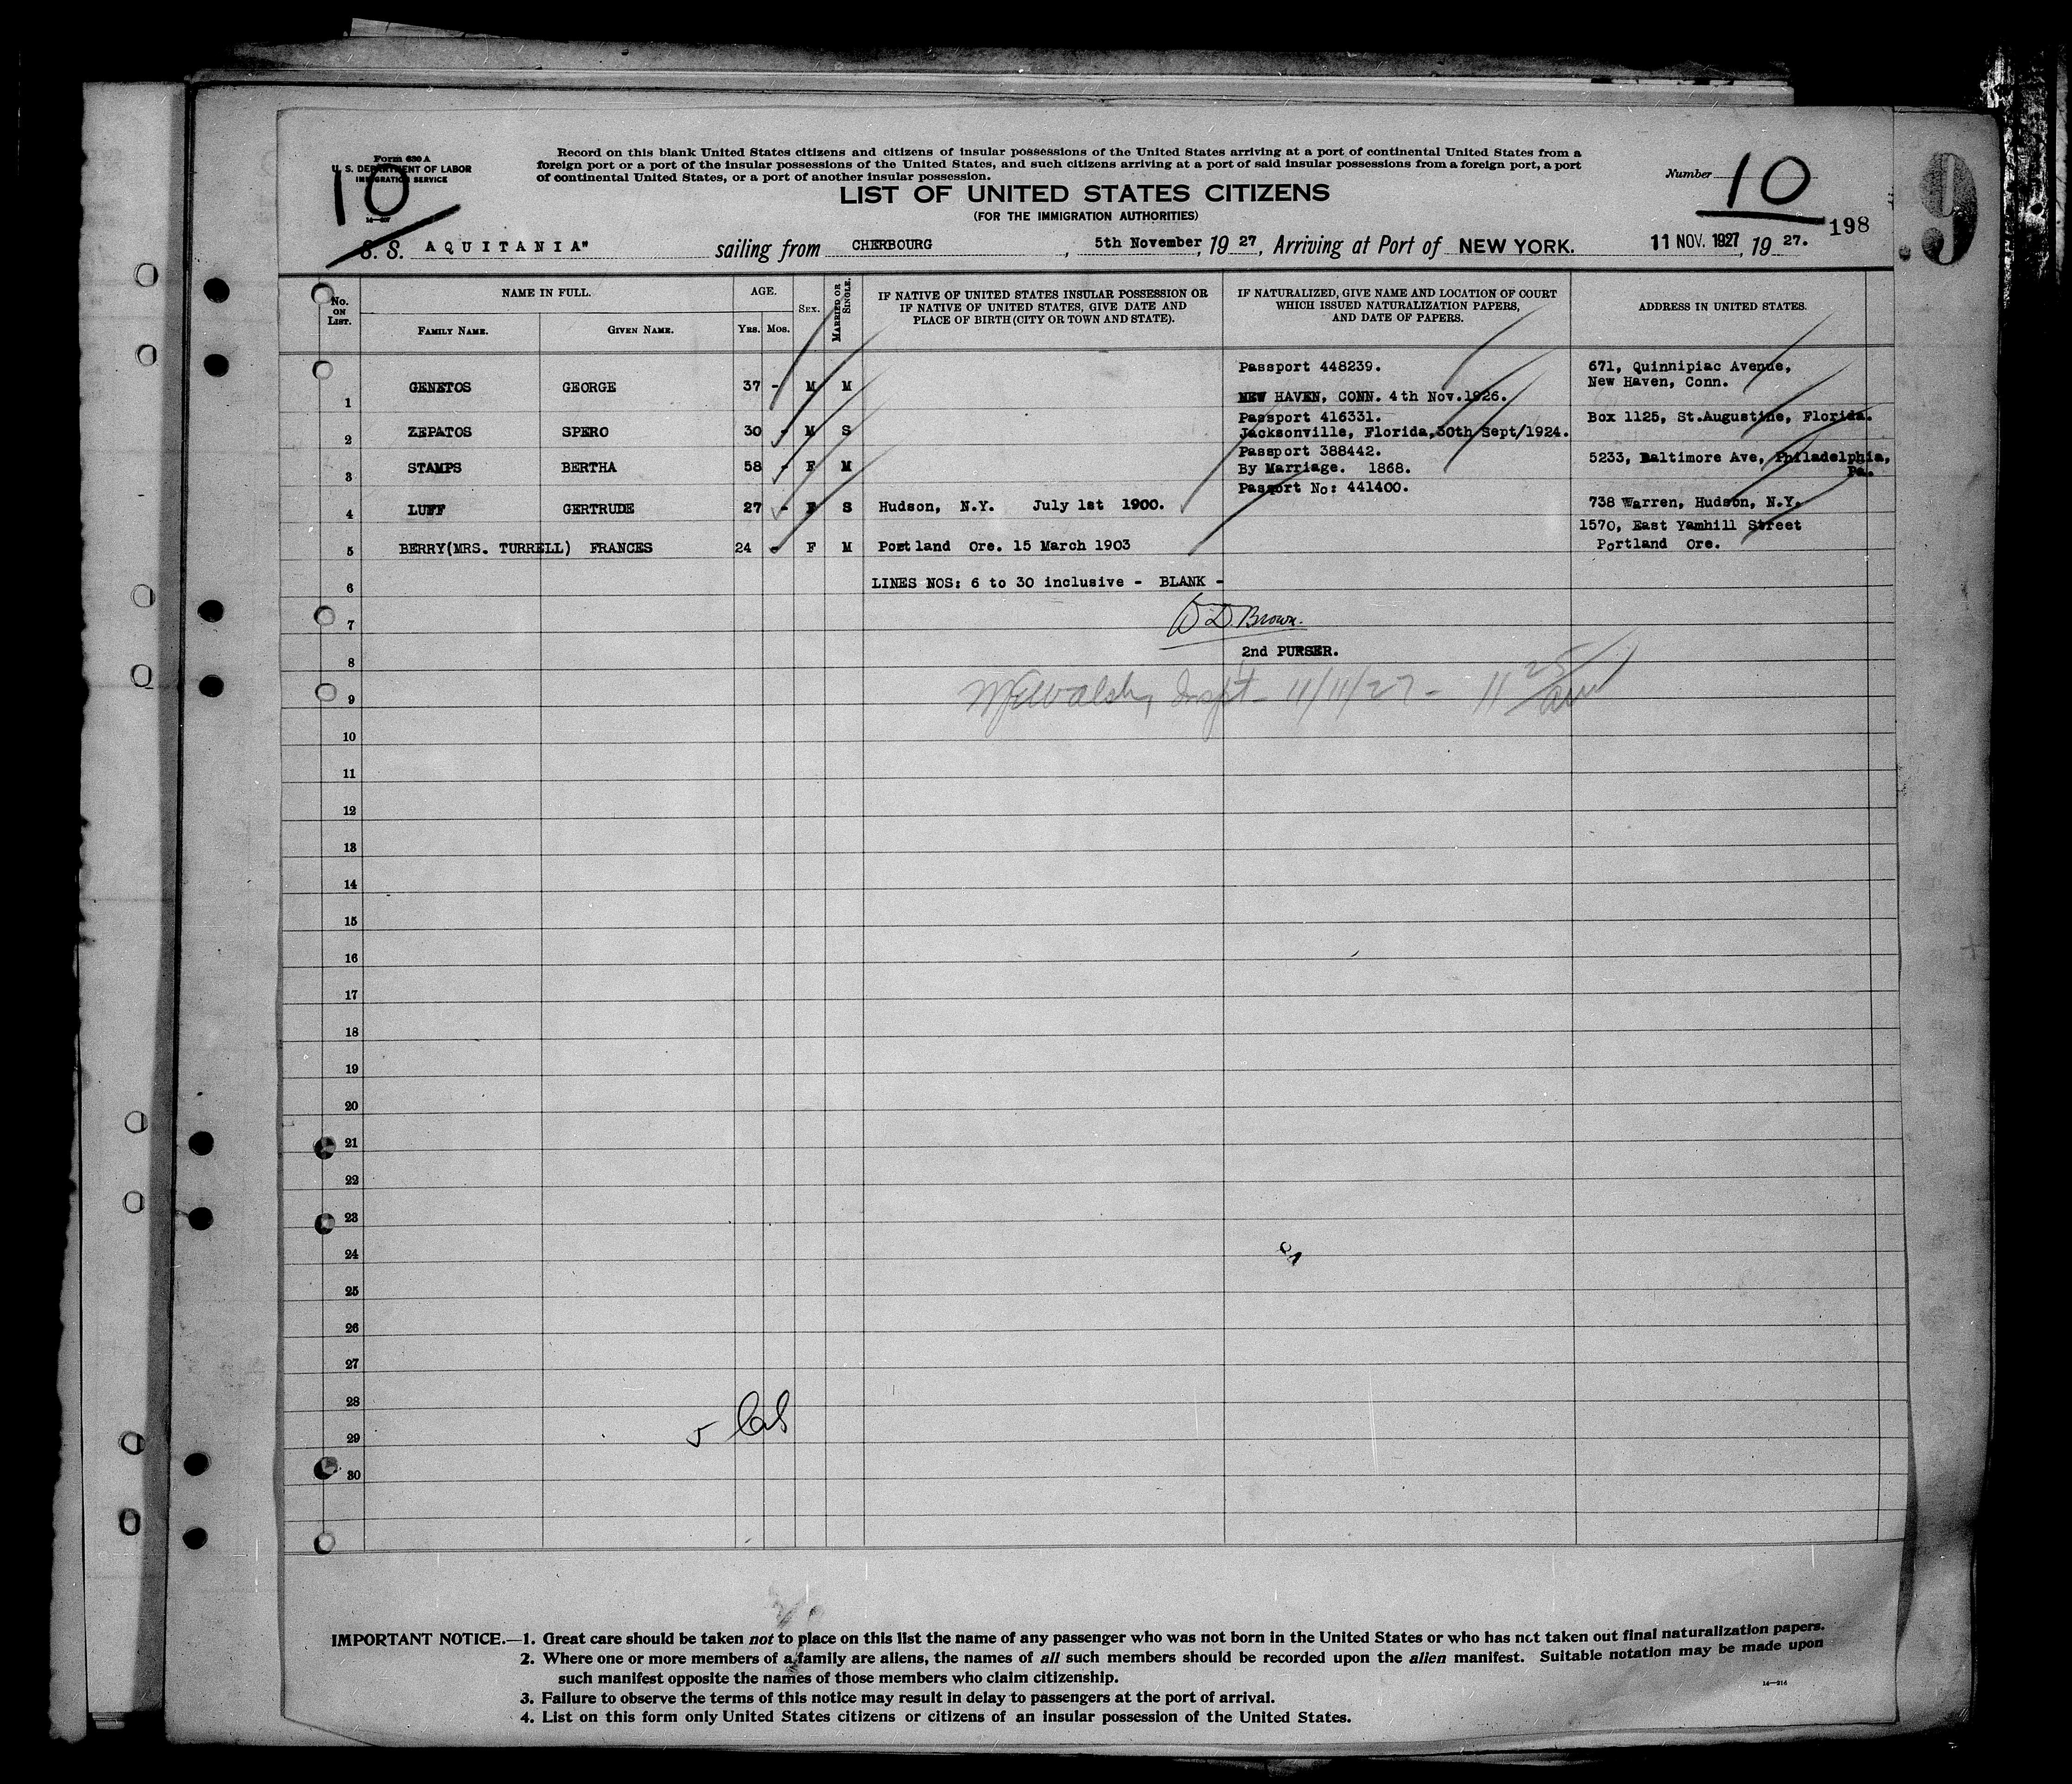 Form 630 A
U. S. DEPARTMENT OF LABOR
IMMIGRATION SERVICE
10
Record on this blank United States citizens and citizens of insular possessions of the United States arriving at a port of continental United States from a
foreign port or a port of the insular possessions of the United States, and such citizens arriving at a port of said insular possessions from a foreign port, a port
of continental United States, or a port of another insular possession.
LIST OF UNITED STATES CITIZENS
(FOR THE IMMIGRATION AUTHORITIES)
Number 10
198
9
S. S. AQUITANIA" sailing from CHERBOURG, 5th November, 1927, Arriving at Port of NEW YORK. 11 NOV. 1927, 1927.
No. ON LIST. NAME IN FULL. AGE. SEX. MARRIED OR SINGLE. IF NATIVE OF UNITED STATES INSULAR POSSESSION OR IF NATIVE OF UNITED STATES, GIVE DATE AND PLACE OF BIRTH (CITY OR TOWN AND STATE). IF NATURALIZED, GIVE NAME AND LOCATION OF COURT WHICH ISSUED NATURALIZATION PAPERS, AND DATE OF PAPERS. ADDRESS IN UNITED STATES.
FAMILY NAME. GIVEN NAME. YRS. MOS.
Passport 448239. 671, Quinnipiac Avenue,
1 GENETOS GEORGE 37 - M M NEW HAVEN, CONN. 4th Nov.1926. New Haven, Conn.
Passport 416331. Box 1125, St.Augustine, Florida.
2 ZEPATOS SPERO 30 - M S Jacksonville, Florida,30th Sept/1924.
Passport 388442.
3 STAMPS BERTHA 58 - F M By Marriage. 1868. 5233, Baltimore Ave, Philadelphia, Pa.
Passport No: 441400.
4 LUFF GERTRUDE 27 - F S Hudson, N.Y. July 1st 1900. 738 Warren, Hudson, N.Y.
1570, East Yamhill Street
5 BERRY(MRS. TURRELL) FRANCES 24 - F M Portland Ore. 15 March 1903 Portland Ore.
6 LINES NOS: 6 to 30 inclusive - BLANK -
7 D. Brown.
8 2nd PURSER.
9 Walsh, Inspt - 11/11/27 - 11 25/am
10
11
12
13
14
15
16
17
18
19
20
21
22
23
24
25
26
27
28
29 5
30
IMPORTANT NOTICE.—1. Great care should be taken not to place on this list the name of any passenger who was not born in the United States or who has not taken out final naturalization papers.
2. Where one or more members of a family are aliens, the names of all such members should be recorded upon the alien manifest. Suitable notation may be made upon
such manifest opposite the names of those members who claim citizenship.
3. Failure to observe the terms of this notice may result in delay to passengers at the port of arrival.
4. List on this form only United States citizens or citizens of an insular possession of the United States.